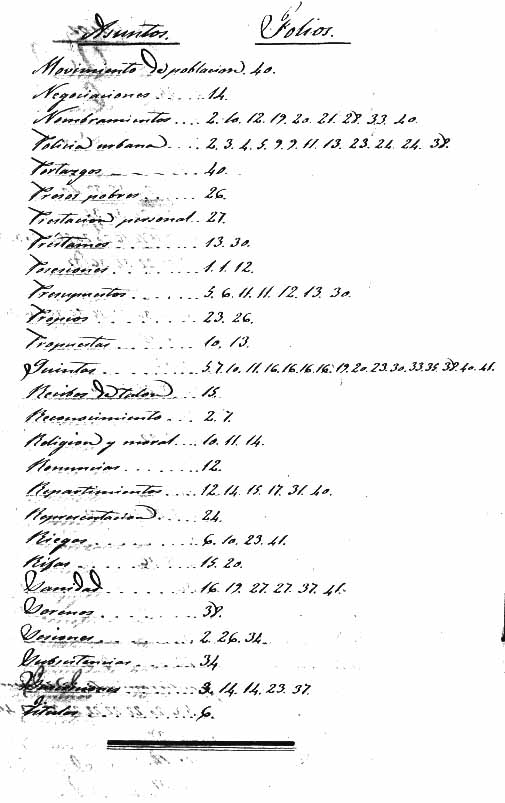 Asuntos. Folios.
Movimiento de poblacion. 40.
Negociaciones ..... 14.
Nombramientos ... 2. 10. 12. 19. 20. 21. 28. 33. 40.
Policia urbana .... 2. 3. 4. 5. 9. 9. 11. 13. 23. 24. 24. 38.
Portazgos ..... 40.
Presos pobres ..... 26.
Prestacion personal. 27.
Préstamos ....... 13. 30.
Posesiones ....... 1. 1. 12.
Presupuestos ..... 5. 6. 11. 11. 12. 13. 30.
Propios ........ 23. 26.
Propuestas ...... 10. 13.
Quintas ........ 5. 7. 10. 11. 16. 16. 16. 16. 19. 20. 23. 30. 33. 35. 38. 40. 41.
Recibos de talon ... 15.
Reconocimiento ... 2. 7.
Religion y moral ... 10. 11. 14.
Renuncias ...... 12.
Repartimientos .... 12. 14. 15. 17. 31. 40.
Representacion .... 24.
Riegos ....... 6. 10. 23. 41.
Rifas ........ 15. 20.
Sanidad ....... 16. 19. 27. 27. 37. 41.
Serenos ....... 38.
Sesiones ....... 2. 26. 34.
Subsistencias ..... 34
3. 14. 14. 23. 37.
Titulos ....... 6.